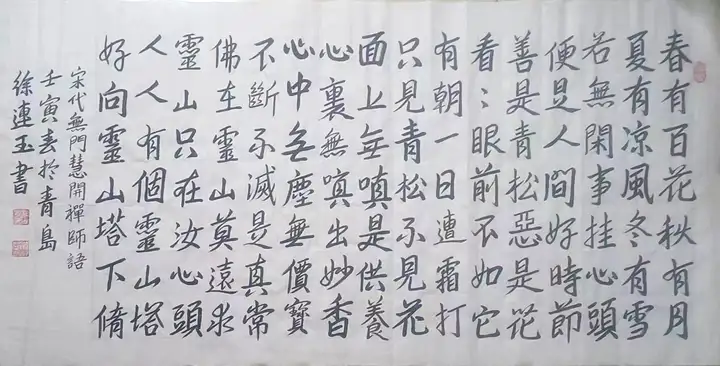 春有百花秋有月
夏有凉風冬有雪
若無閑事挂心頭
便是人間好時節
善是青松惡是花
看〻眼前不如它
有朝一日遭霜打
只見青松不見花
面上無嗔是供養
心裏無嗔出妙香
心中无塵無價寶
不斷不滅是真常
佛在靈山莫遠求
靈山只在汝心頭
人人有個靈山塔
好向靈山塔下脩
宋代無門慧開禪師語
壬寅春於青島
徐連玉書